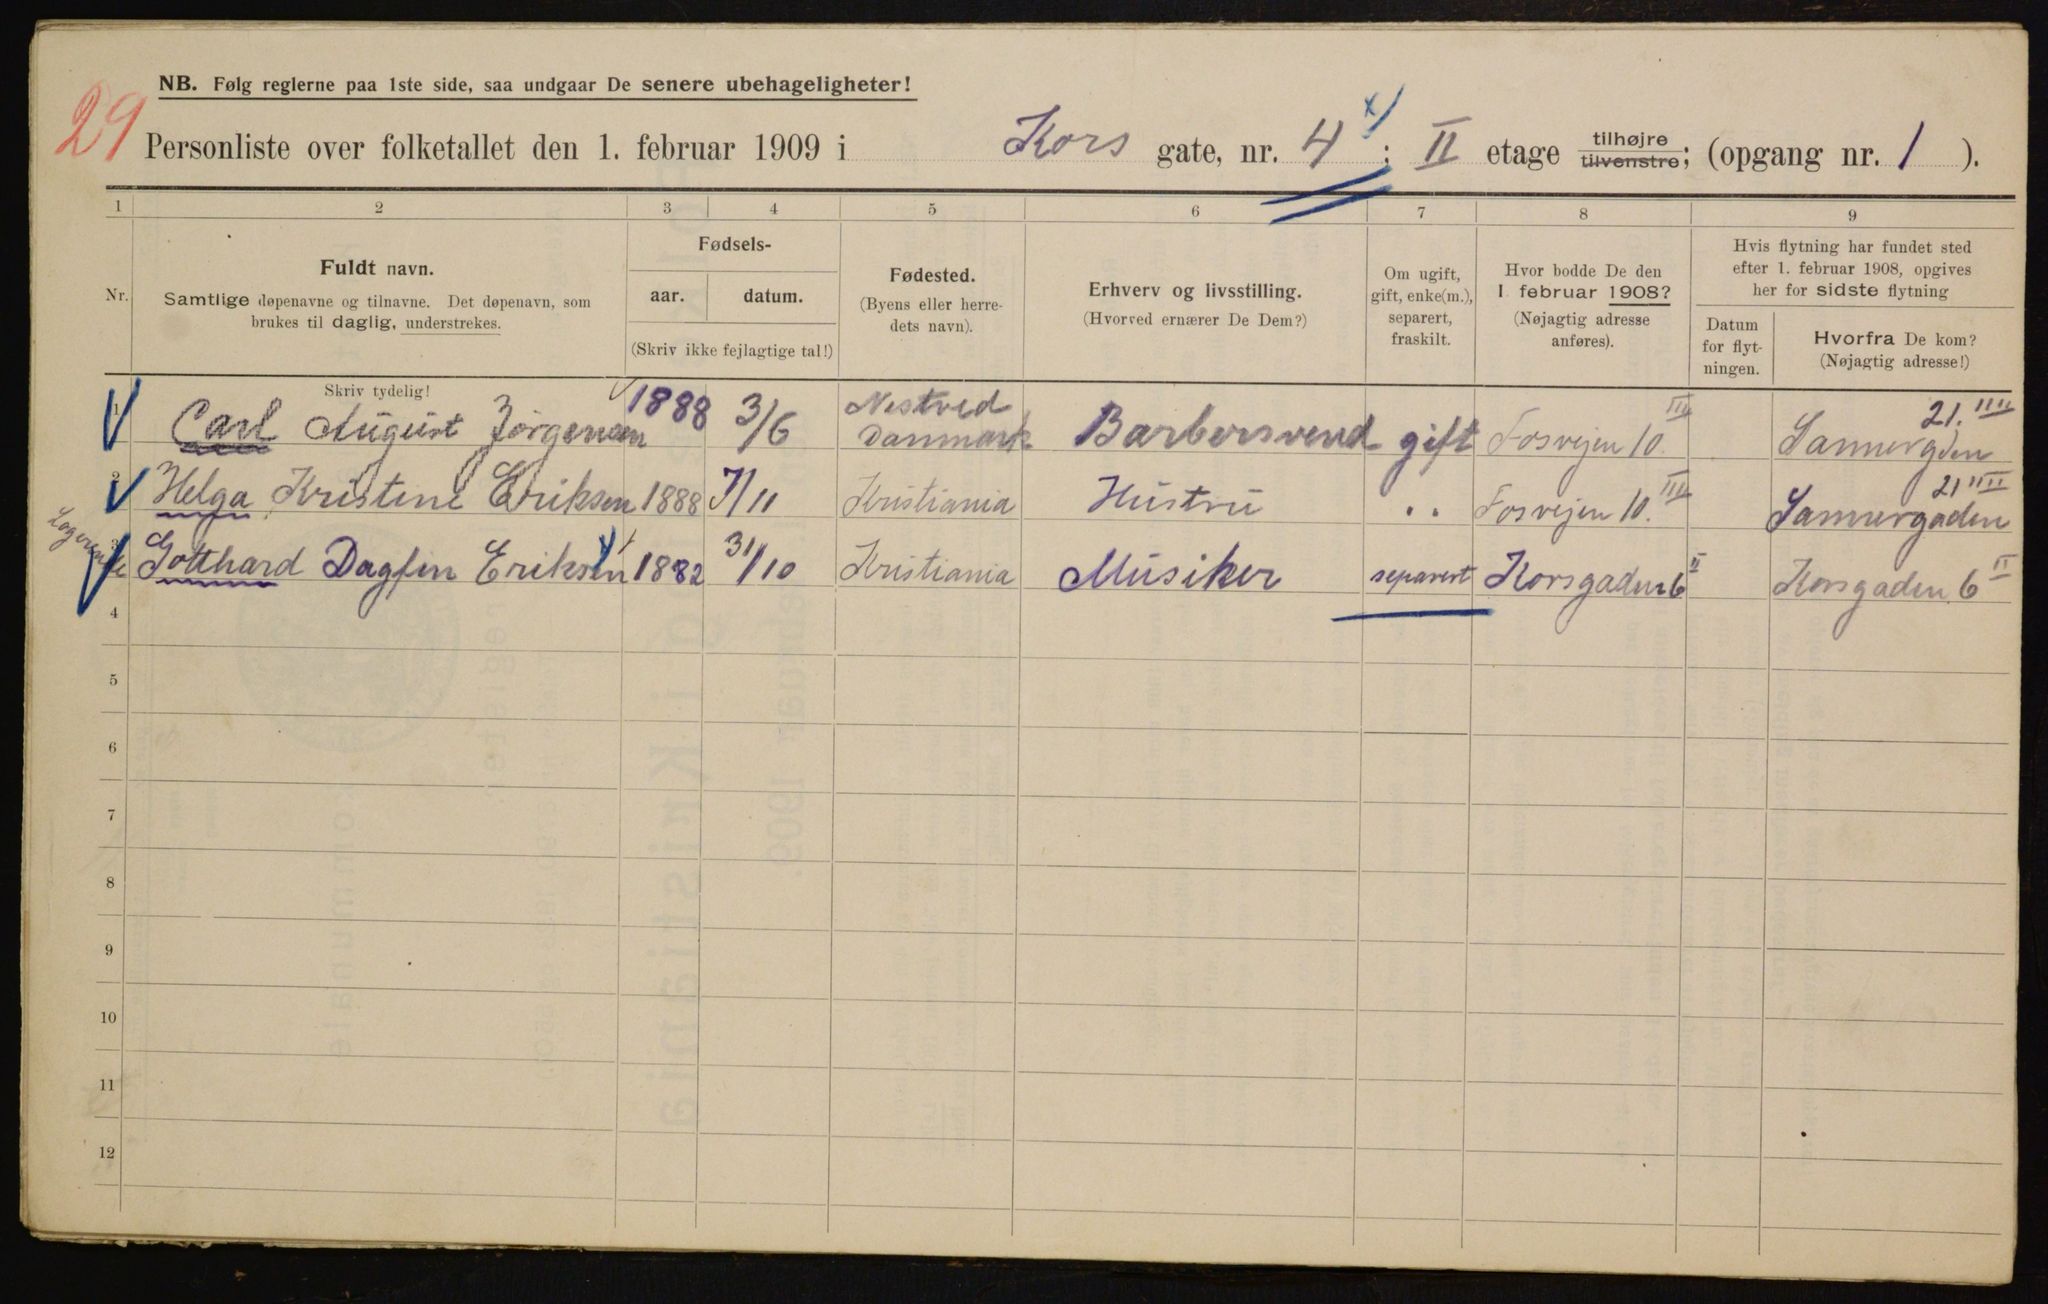 NB. Følg reglerne paa 1ste side, saa undgaar De senere ubehageligheter!
29
Personliste over folketallet den 1. februar 1909 i Kors gate, nr. 4 x) ; II etage tilhøjre tilvenstre; (opgang nr. 1 ).
1 2 3 4 5 6 7 8 9
Nr.
Fuldt navn.
Samtlige døpenavne og tilnavne. Det døpenavn, som
brukes til daglig, understrekes.
Skriv tydelig!
Fødsels-
aar. datum.
(Skriv ikke fejlagtige tal!)
Fødested.
(Byens eller herre-
dets navn).
Erhverv og livsstilling.
(Hvorved ernærer De Dem?)
Om ugift,
gift, enke(m.),
separert,
fraskilt.
Hvor bodde De den
1 februar 1908?
(Nøjagtig adresse
anføres).
Hvis flytning har fundet sted
efter 1. februar 1908, opgives
her for sidste flytning
Datum
for flyt-
ningen.
Hvorfra De kom?
(Nøjagtig adresse!)
1 Carl August Jörgensen 1888 3/6 Nestved Danmark Barbersvend gift Fosvejen 10. III Sannergden 21. IIII
2 Helga Kristine Eriksen 1888 7/11 Kristiania Hustru ,, Fosvejen 10. III Sannergaden 21 IIII
Logerende
3 Gotthard Dagfin Eriksen 1882 31/10 Kristiania Musiker separert Korsgaden 6 II Korsgaden 6 II
4
5
6
7
8
9
10
11
12